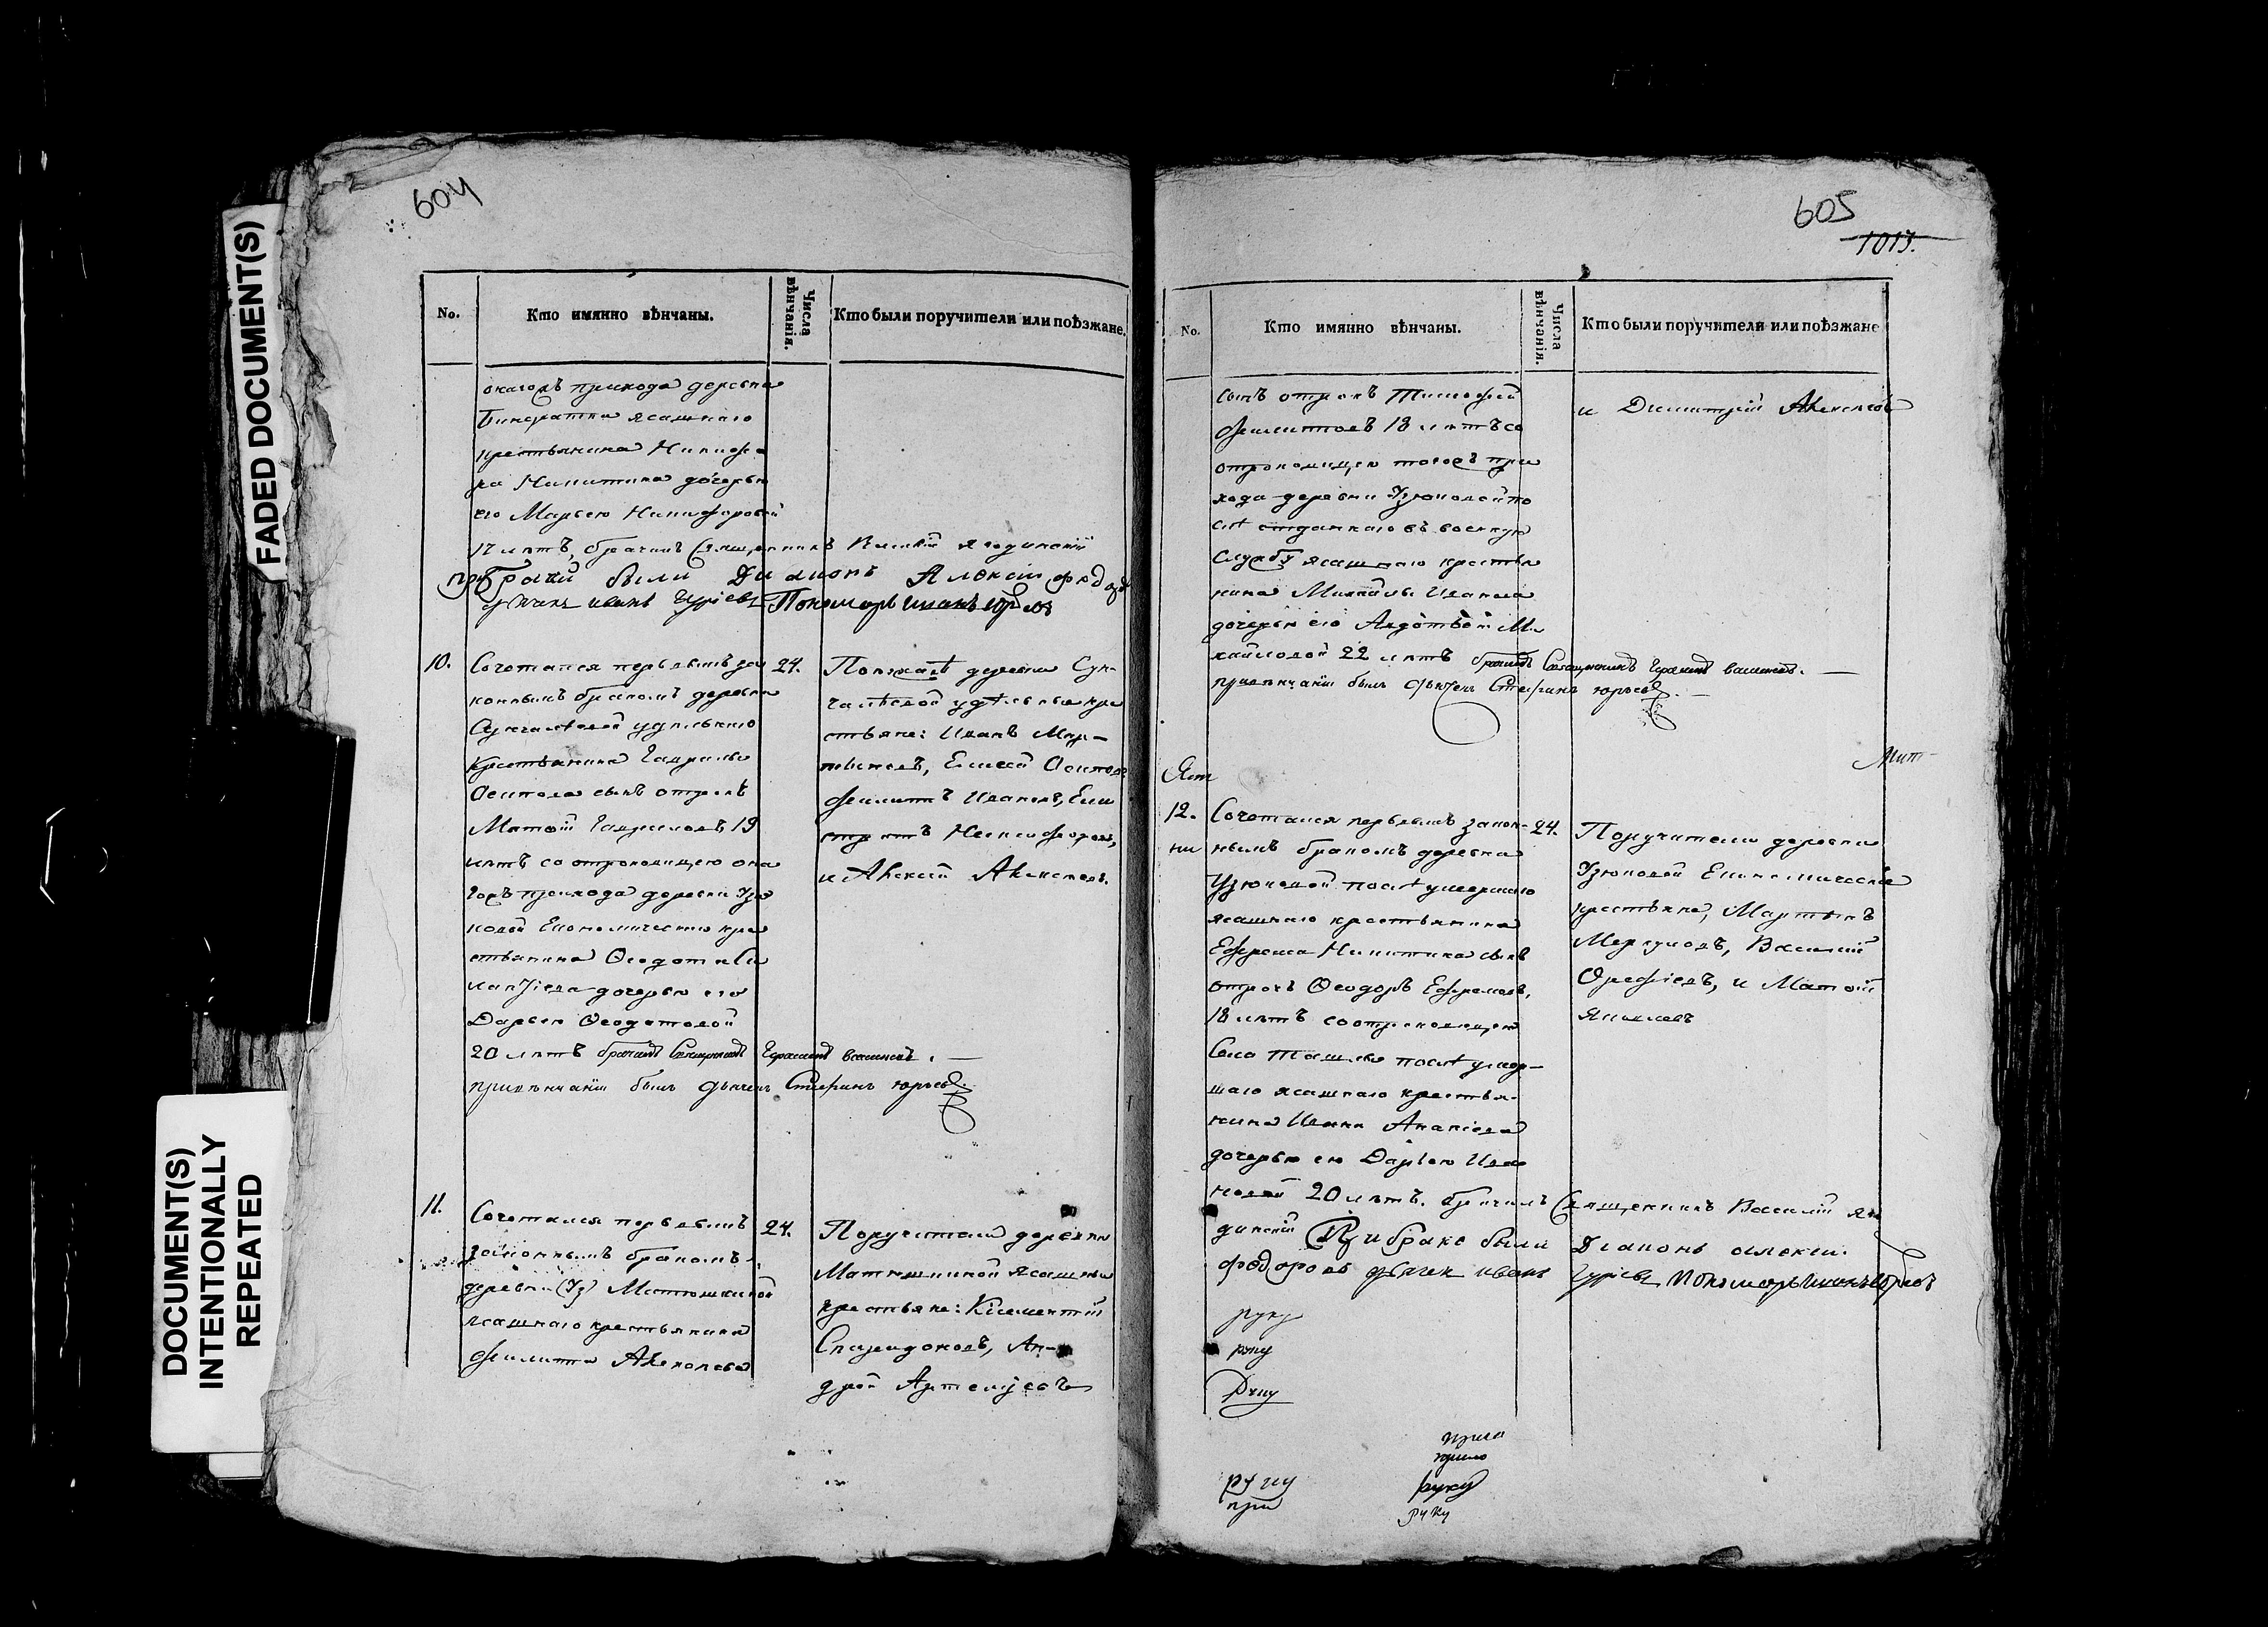 604
FADED DOCUMENT(S)
DOCUMENT(S)
INTENTIONALLY
REPEATED
No.
Кто имянно вѣнчаны.
Числа
вѣнчанія.
Кто были поручители или поѣзжане.
прихода деревни
ясашнаго
крестьянина Никифо
ра Никитина дочерью
его Марьею Никифоровой
17 лѣтъ, бра чилъ Священникъ Василій Ягодинскій
при браки были Диаконъ Алексій федоровъ
дьчекъ иванъ Гурiевъ Пономарь иванъ юрьевъ
10.
Сочетался первымъ за
коннымъ бракомъ деревни
Сунчалѣевой удѣльнаго
крестьянина Гаврилы
Осипова сынъ отрокъ
Матѳій Гавриловъ 19
лѣтъ со отроковицею она
гожъ прихода деревни Узю
ковой Економическаго кре
стьянина Ѳеодота Си
лантіева дочерью его
Дарьею Ѳеодотовой
20 лѣтъ бра чилъ Священникъ Герасимъ васильевъ.
при вѣнчаніи былъ дьячекъ Стефанъ юрьевъ
24.
Поѣзжанѣ деревни Сун-
чалѣевой удѣльные кре
стьяне: Иванъ Мар-
Елисей Осиповъ
Филиппъ Ивановъ, Ели
стратъ Никифоровъ,
и Алексій Алексѣевъ.
11.
Сочетался первымъ
законнымъ бракомъ
деревни (Уз) Матюшкиной
ясашнаго крестьянина
Филиппа Алексѣева
24.
Поручители деревни
Матюшкиной ясашные
крестьяне: Климентій
Спиридоновъ, Ан-
дрей Артемьевъ
605
1013.
No.
Кто имянно вѣнчаны.
Числа
вѣнчанія.
Кто были поручители или поѣзжане
сынъ отрокъ Тимофей
Филиповъ 18 лѣтъ со
отроковицею тогожъ при
хода деревни Узюковой по
слѣ отданнаго въ воескую
службу ясашнаго крестья
нина Михайлы Иванова
дочерью его Авдотьѣй Ми
хайловой 22 лѣтъ бра чилъ Священникъ Герасимъ васильевъ.
при вѣнчаніи былъ дьячекъ Стефанъ юрьевъ.
и Димитрій Алексѣевъ
12.
Сочетался первымъ закон-
нымъ бракомъ деревни
Узюковой послѣ умершаго
ясашнаго крестьянина
Ефрема Никитина сынъ
отрокъ Ѳеодоръ Ефремовъ,
18 лѣтъ со отроковицею
Села Ташлы послѣ умер-
шаго ясашнаго крестья-
нина Ивана Ананіева
дочерью ею Дарьею Ива
новой 20 лѣтъ. бра чилъ Священникъ Василій Яго
динскій При браке были Диаконъ алексий.
федоровъ дьячек иванъ Гурiевъ Пономарь иванъ юрьевъ
24.
Поручители деревни
Узюковой Економическіе
крестьяне, Мартынъ
Меркуловъ, Василій
Ѳрефіевъ, и Матѳій
Яковлевъ
руку
руку
Руку
руку
при
руку
руку